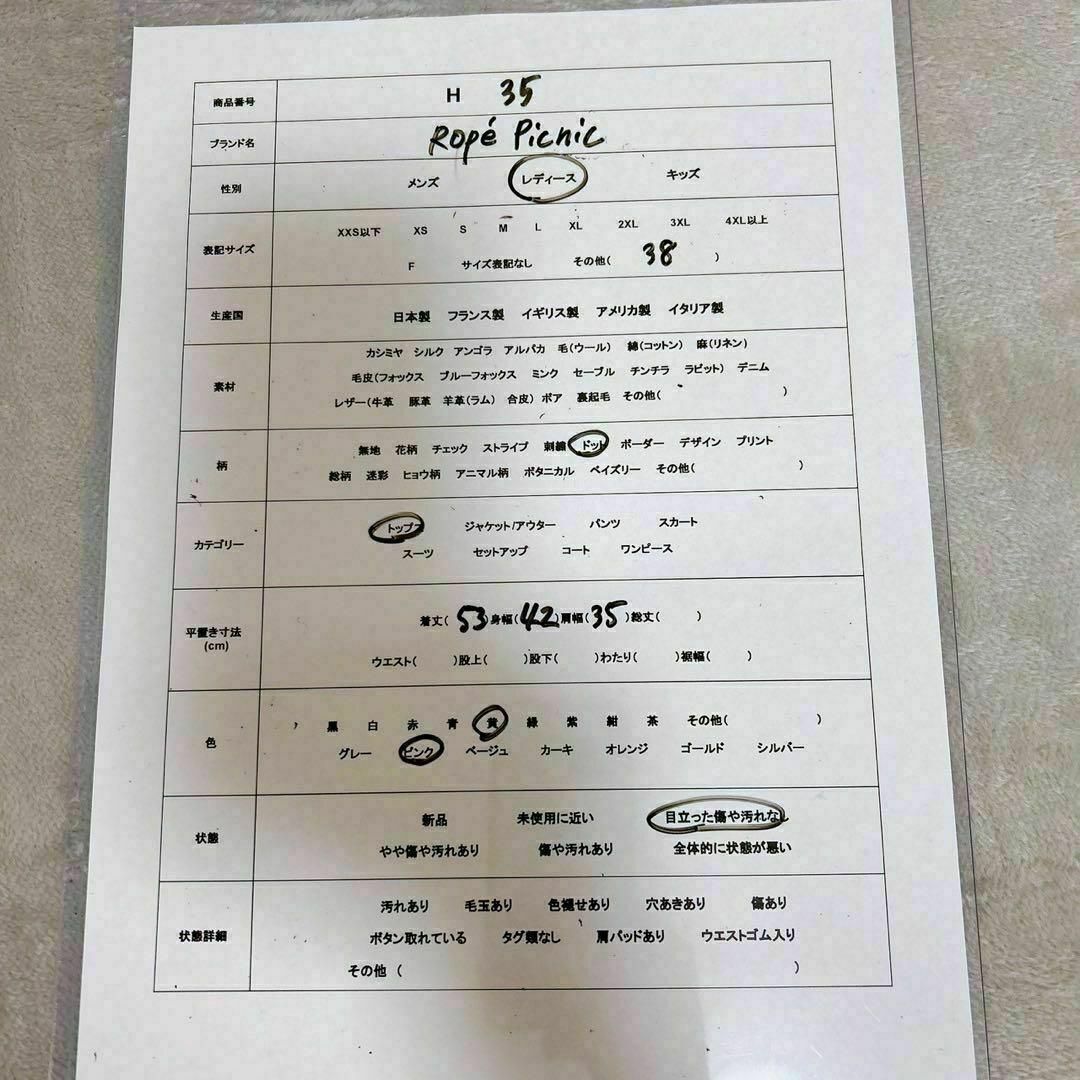 商品番号 H 35
ブランド名 Ropé Picnic
性別 メンズ レディース キッズ
XXS以下 XS S M L XL 2XL 3XL 4XL以上
表記サイズ
F サイズ表記なし その他( 38 )
生産国 日本製 フランス製 イギリス製 アメリカ製 イタリア製
カシミヤ シルク アンゴラ アルパカ 毛(ウール) 綿(コットン) 麻(リネン)
素材 毛皮(フォックス ブルーフォックス ミンク セーブル チンチラ ラビット) デニム
レザー(牛革 豚革 羊革(ラム) 合皮) ボア 裏起毛 その他( )
無地 花柄 チェック ストライプ 刺繍 ドット ボーダー デザイン プリント
柄
総柄 迷彩 ヒョウ柄 アニマル柄 ボタニカル ペイズリー その他( )
トップス ジャケット/アウター パンツ スカート
カテゴリー
スーツ セットアップ コート ワンピース
着丈( 53 )身幅( 42 )肩幅( 35 )総丈( )
平置き寸法
(cm)
ウエスト( )股上( )股下( )わたり( )裾幅( )
黒 白 赤 青 黄 緑 紫 紺 茶 その他( )
色
グレー ピンク ベージュ カーキ オレンジ ゴールド シルバー
新品 未使用に近い 目立った傷や汚れなし
状態
やや傷や汚れあり 傷や汚れあり 全体的に状態が悪い
汚れあり 毛玉あり 色褪せあり 穴あきあり 傷あり
状態詳細 ボタン取れている タグ類なし 肩パッドあり ウエストゴム入り
その他 ( )